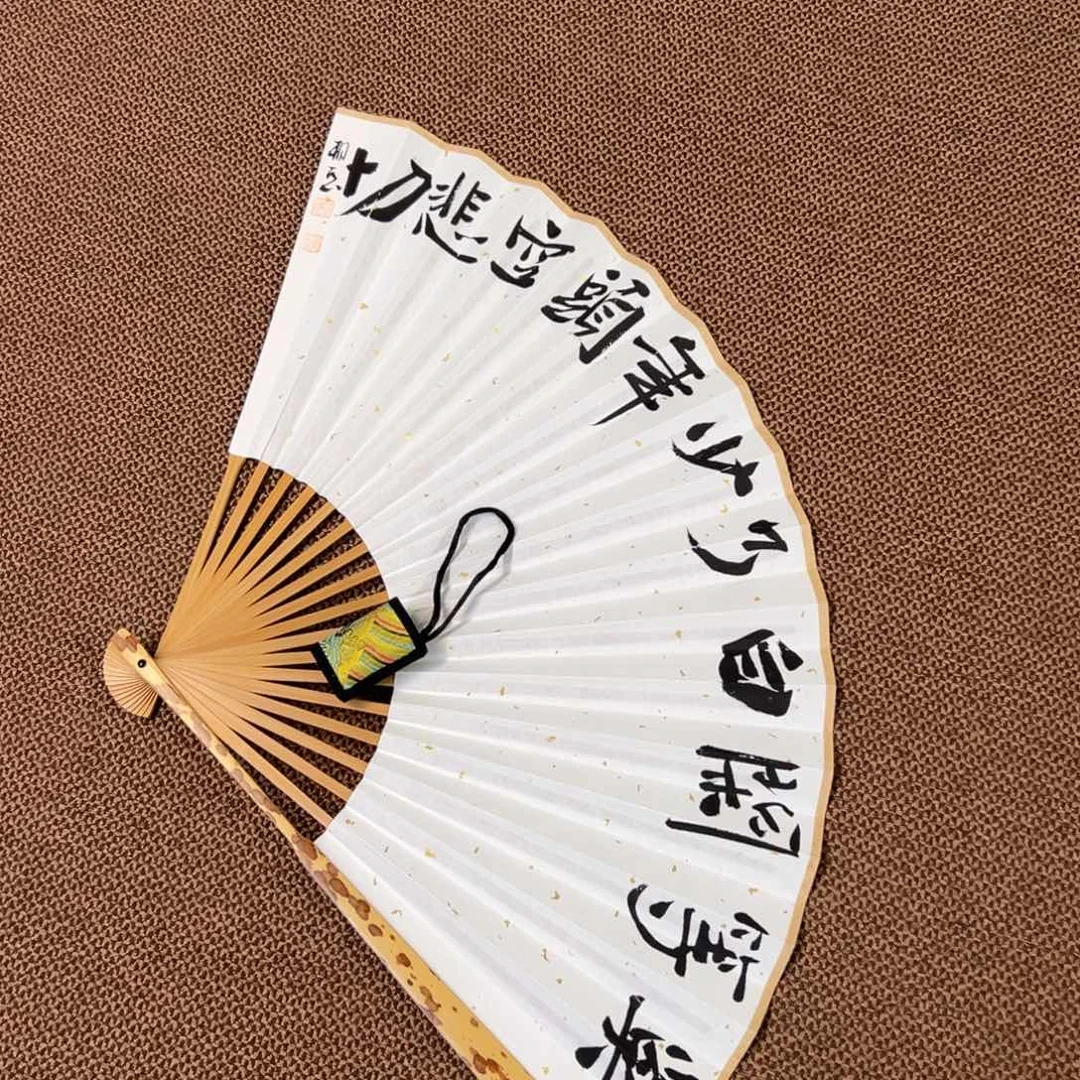 莫等閑白了少年頭空悲切